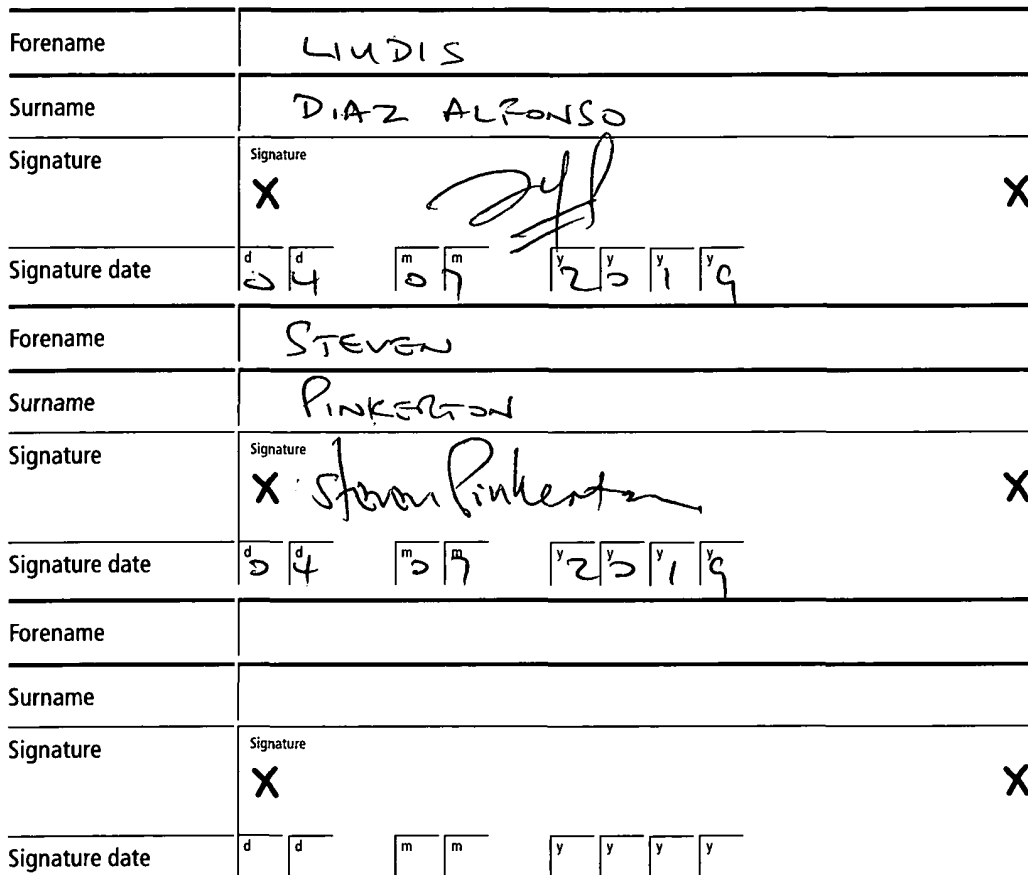 Forename LIUDIS
Surname DIAZ ALFONSO
Signature Signature
X X
Signature date d d m m y y y y
04 07 2019
Forename STEVEN
Surname PINKERTON
Signature Signature
X Steven Pinkerton X
Signature date d d m m y y y y
04 07 2019
Forename
Surname
Signature Signature
X X
Signature date d d m m y y y y